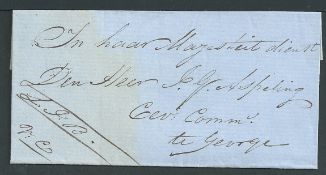 In haar Majesteit dienst
Den Heer J. G. Aspeling
Civ. Comm.
te George